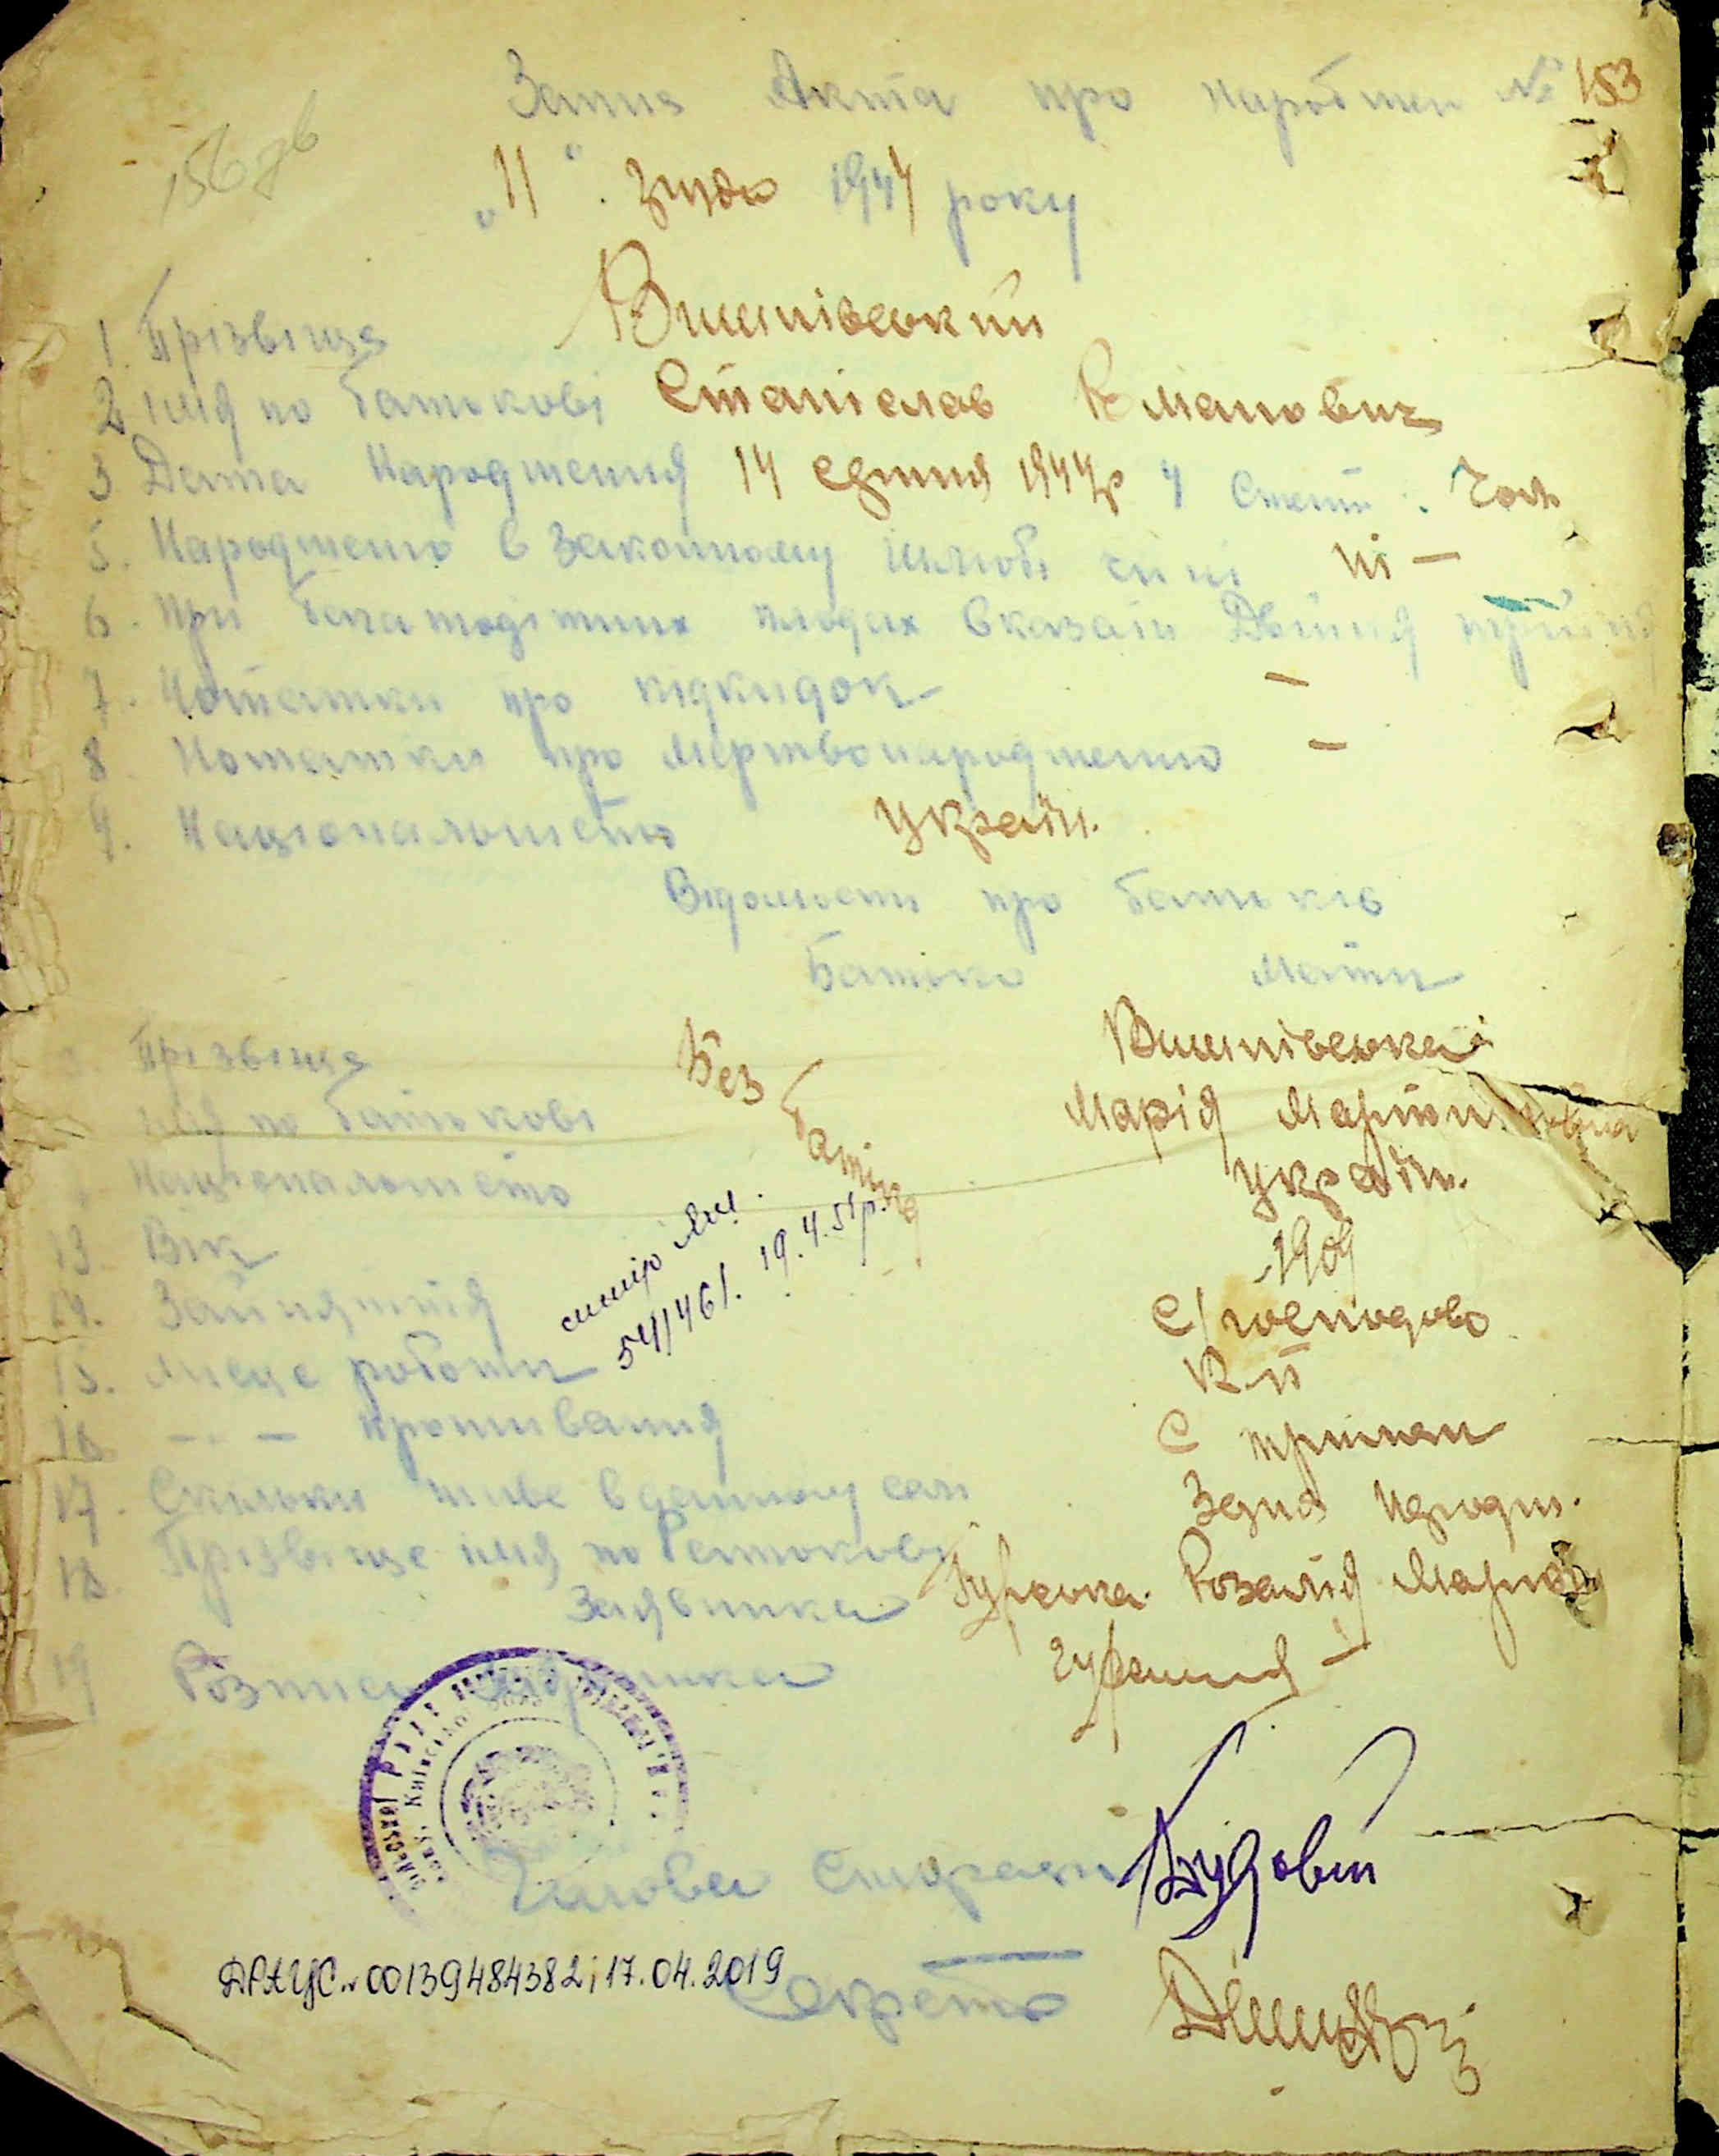 Запис Акта про народжен № 153
156 зв
"11" грудн 1944 року
1. Прізвище Вишнівський
2 імя по батькові Станіслав Романович
3 Дата Народження 14 1944р 4 Стать: Чол
5. Народжено в законному шлюбі чи ні ні —
6. При багатодітних плодах вказати Двійня трійня
7. Нотатки про підкидок —
8 Нотатки про мертвонароджению —
9. Національність україн.
Відомости про батьків
Батько Мати
Прізвище Без батька Вишнівська
імя по батькові Марія Мартинівна
Національність україн.
13 Вік 1909
14. Зайняття С/господово
15. Місце роботи
16 — " — проживання С
17. Скільки живе в данному селі З дня народж.
18. Прізвище імя по Батькові
Заявника Розалія
19 Розписка заявника
54/461. 19.4.51р.
Голова Сільради
ДРАЦС 00139484382 17.04.2019
Секретр